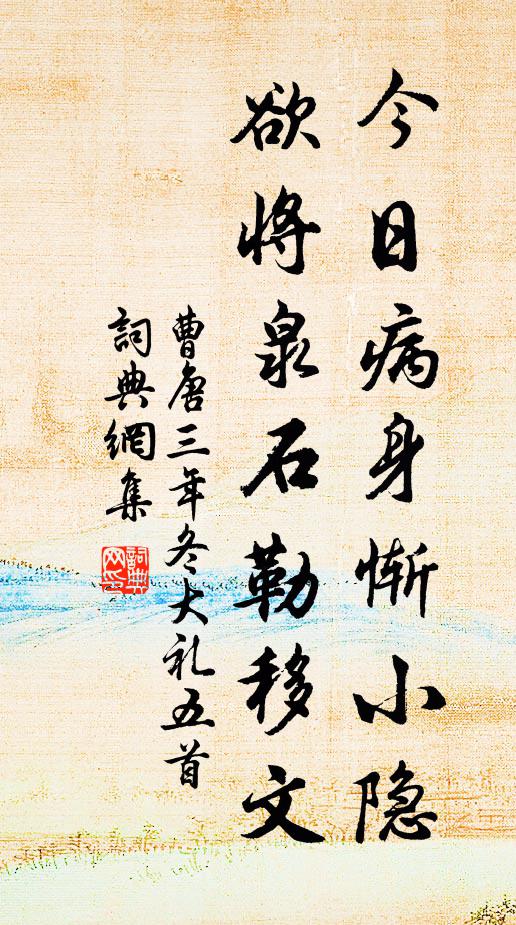 今日病身慚小隐
欲将泉石勒移文
曹唐三年冬大礼五首
詞典網集
詞典网印